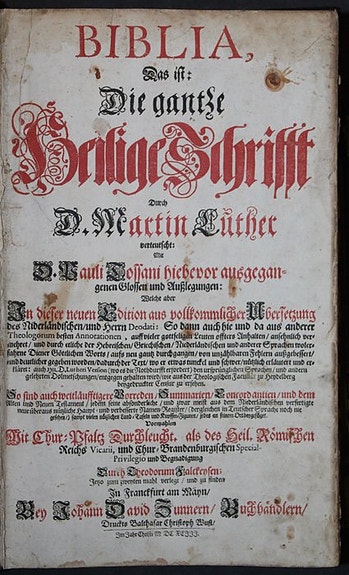 BIBLIA,
Das ist:
Die gantze
Heilige Schrifft
Durch
D. Martin Luther
verteutscht:
Mit
D. Pauli Tossani hiebevor außgegan-
genen Glossen und Außlegungen:
Welche aber
In dieser neuen Edition aus vollkommlicher Ubersetzung
des Niderländischen/ und Herrn Deodati: So dann auch hie und da aus anderer
Theologorum besten Annotationen, auff vieler gottseligen Leuten offters Anhalten/ ansehnlich ver-
mehret/ und durch etliche der Hebreischen/ Griechischen/ Niderländischen und anderer Sprachen woler-
fahrne Diener Göttlichen Worts/ auffs neu gantz durchgangen/ von unzählbaren Fehlern außgebessert/
und deutlicher gegeben worden/ dadurch der Text/ wo er etwas tunckel und schwer/ nützlich erläutert und er-
kläret: auch D. Luthers Version (wo es die Nothdurfft erfordert) den ursprünglichen Sprachen/ und andern
gelehrten Dolmetschungen/ entgegen gehalten wird/ wie aus der Theologischen Facultät zu Heydelberg
vorgedruckter Censur zu ersehen.
So sind auch weitläufftigere Vorreden/ Summarien/ Concordantien/ und dem
Alten und Neuen Testament/ jedem seine absonderliche/ und zwar meist aus dem Niderländischen verfertigte
neue überaus nützliche Haupt- und verbesserte Namen Register/ dergleichen in Teutscher Sprache noch nie
gesehen/ sampt vielen nützlichen Land-Tafeln und Kupffer-Figuren/ oder zu seinen Ort beygefüget.
Vormahlen
Mit Chur-Pfaltz Durchleucht. als des Heil. Römischen
Reichs Vicarii, und Chur-Brandenburgischen Special-
Privilegio und Begnadigung
Durch Theodorum Falckeysen:
Jetzo zum zweyten mahl verlegt/ und zu finden
In Franckfurt am Mäyn/
Bey Johann David Zunnern/ Buchhändlern/
Druckts Balthasar Christoph Wust/
Im Jahr Christi M DC XCIII.